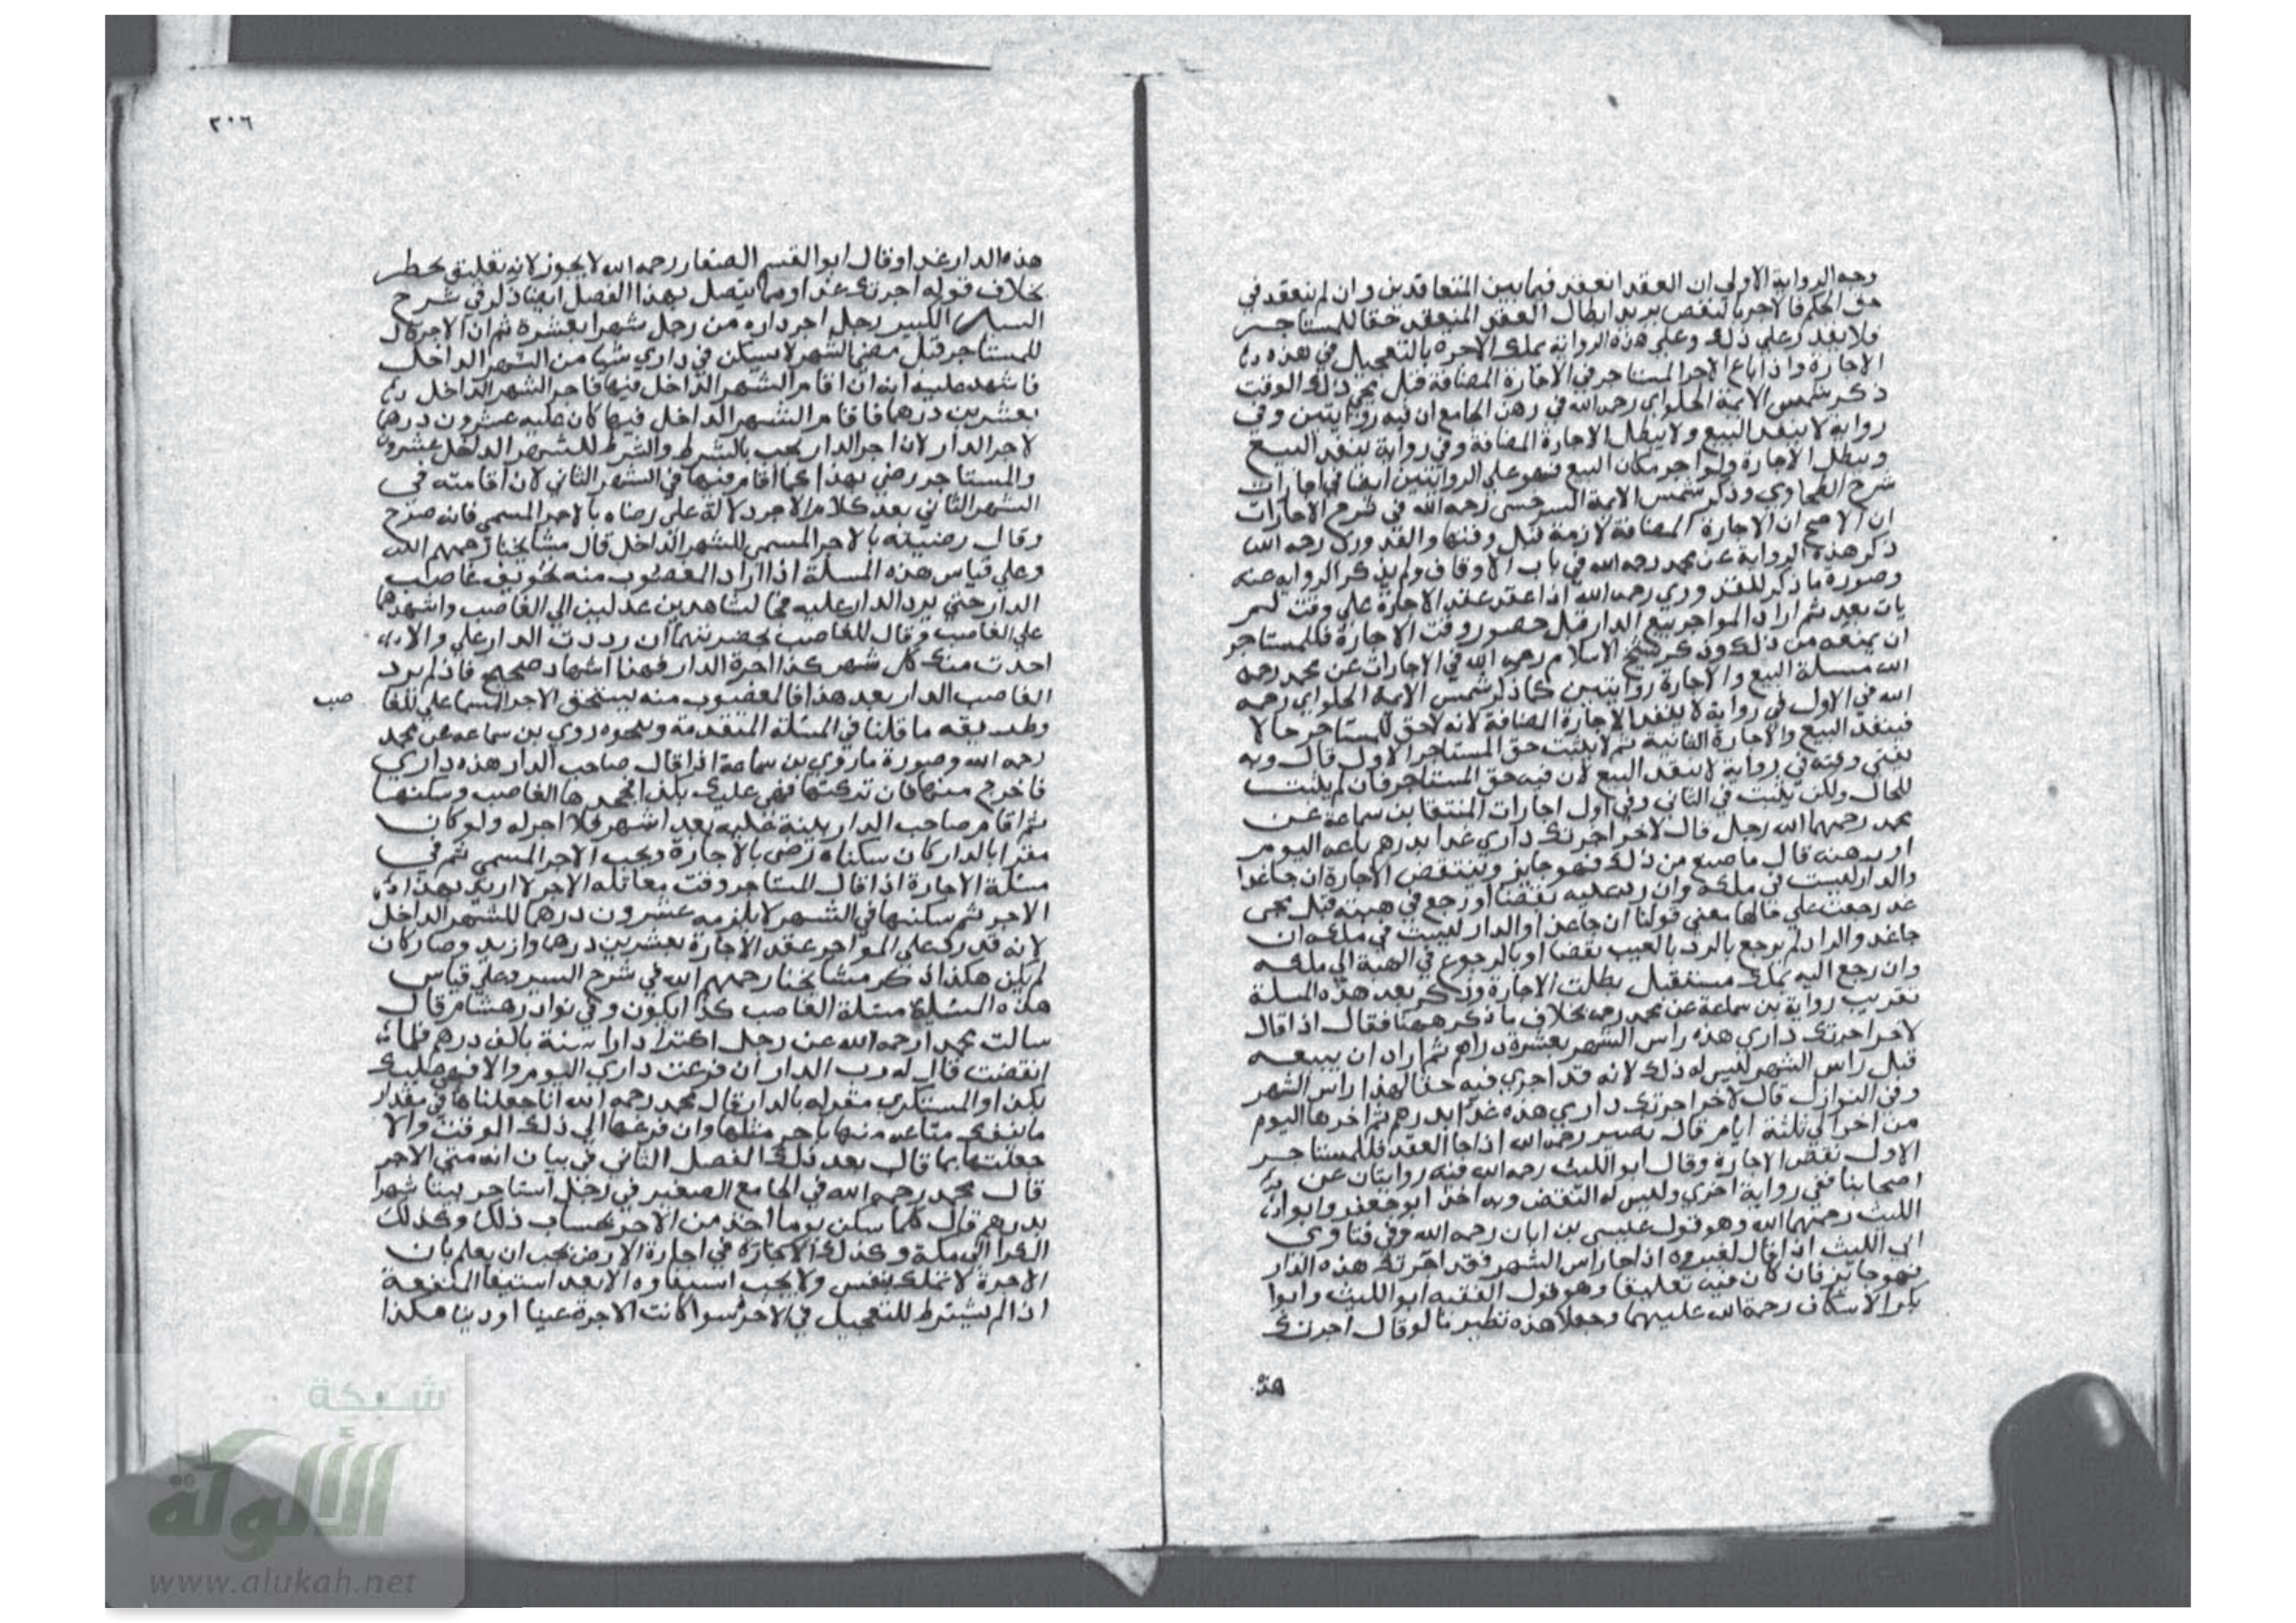 وجه الرواية الاولي ان العقد انعقد فيما بين المتعاقدين وان لم ينعقد في
حق الحكم فالاجر بالنقض يريد ابطال العقد المنعقد حقا للمستاجر
ولا يقدر علي ذلك وعلي هذه الرواية يملك الاجرة بالتعجيل في هذه
الاجارة واذا باع الاجر المستاجر في الاجارة المضافة قبل مجي ذلك الوقت
ذكر شمس الايمة الحلواي رحمه الله في رهن الجامع ان فيه روايتين وفي
رواية لا ينفذ البيع ولا يبطل الاجارة المضافة وفي رواية ينفذ البيع
ويبطل الاجارة ولو اجر مكان البيع فهو علي الروايتين ايضا في اجارات
شرح الطحاوي وذكر شمس الايمة السرخسي رحمه الله في شرح الاجارات
ان الاصح ان الاجارة المضافة لازمة قبل وقتها والقدوري رحمه الله
ذكر هذه الرواية عن محمد رحمه الله في باب الاوقاف ولم يذكر الرواية عنه
وصورة ما ذكر للقدوري رحمه الله اذا عقد عقد الاجارة علي وقت لم
يات بعد ثم اراد المواجر بيع الدار قبل حضور وقت الاجارة فللمستاجر
ان يمنعه من ذلك وذكر شيخ الاسلام رحمه الله في الاجارات عن محمد رحمه
الله مسلة البيع والاجارة روايتين كما ذكر شمس الايمة الحلواي رحمه
الله في الاول في رواية لا ينفذ الاجارة المضافة لانه لاحق للمستاجر حالا
فينفذ البيع والاجارة الثانية ثم لا يثبت حق المستاجر الاول قال وبه
يفتي وفيه في رواية لا ينفذ البيع لان فيه حق المستاجر فان لم يثبت
للحال ولكن يثبت في الثاني وفي اول اجارات المنتقا بن سماعة عن
محمد رحمهما الله رجل قال لاخر اجرتك داري غدا بدرهم باعه اليوم
او رهنه قال ما صنع من ذلك فهو جايز وينتقض الاجارة ان جا غدا
والدار ليست في ملكه وان رد عليه نقضا او رجع في هبته قبل مجي
غد رجعت علي حالها معني قولنا ان جا غدا والدار ليست في ملكه ان
جا غد والدار لم يرجع بالرد بالعيب نقضا او بالرجوع في الهبة الي ملكه
وان رجع اليه بملك مستقبل بطلت الاجارة وذكر بعد هذه المسلة
تقريب رواية بن سماعة عن محمد رحمه بخلاف ما ذكر ههنا فقال اذا قال
لاخر اجرتك داري هذه راس الشهر بعشرة دراهم ثم اراد ان يبيعه
قبل راس الشهر ليس له ذلك لانه قد اجري فيه حقا لهذا راس الشهر
وفي النوازل قال لاخر اجرتك داري هذه غدا بدرهم ثم اخرها اليوم
من اخر الي ثلثة ايام قال نصير رحمه الله اذا جا العقد فللمستاجر
الاول نقض الاجارة وقال ابو الليث رحمه الله فيه روايتان عن
اصحابنا ففي رواية اخري وليس له النقض وبه اخذ ابو جعفر وابو
الليث رحمهما الله وهو قول عيسي بن ابان رحمه الله وفي فتاوي
ابي الليث اذا قال لغيره اذا جا راس الشهر فقد اجرتك هذه الدار
فهو جايز فان كان فيه تعليقا وهو قول الفقيه ابو الليث وابوا
بكر الاسكاف رحمة الله عليهما وجعلا هذه نظير ما لو قال اجرتك
هذه
٢٠٦
هذه الدار غدا وقال ابو القسم الصفار رحمه الله لا يجوز لانه تعليق بخطر
بخلاف قوله اجرتك غدا ومما يتصل بهذا الفصل ايضا ذكر في شرح
السير الكبير رجل اجر داره من رجل شهرا بعشرة ثم ان الاجر قال
للمستاجر قبل مضي الشهر لا يسكن في داري شيا من الشهر الداخل
فاشهد عليه انه ان اقام الشهر الداخل فيها فاجر الشهر الداخل
بعشرين درهما فاقام الشهر الداخل فيها كان عليه عشرون درهما
لاجر الدار لان اجر الدار يجب بالشرط والشرط للشهر الداخل عشرون
والمستاجر رضي بهذا كما اقام فيها في الشهر الثاني لان اقامته في
الشهر الثاني بعد كلام الاجر دلالة علي رضاه بالاجر المسمي فانه صرح
وقال رضيته بالاجر المسمي للشهر الداخل قال مشايخنا رحمهم الله
وعلي قياس هذه المسلة اذا اراد المغصوب منه تخويف غاصب
الدار حتي يرد الدار عليه فجا بشاهدين عدلين الي الغاصب واشهدهما
علي الغاصب وقال للغاصب بحضرتهما ان رددت الدار علي والا
اخدت منك كل شهر كذا اجرة الدار فهذا اشهاد صحيح فاذا لم يرد
الغاصب الدار بعد هذا فالمغصوب منه يستحق الاجر المسما علي للغا
صب
وطريقه ما قلنا في المسئلة المتقدمة ونحوه روي بن سماعه عن محمد
رحمه الله وصورة ما روي بن سماعة اذا قال صاحب الدار هذه داري
فاخرج منها فان تركتها فهي عليك بكذا فجحدها الغاصب وسكنها
ثم اقام صاحب الدار بينة عليه بعد اشهر فلا اجر له ولو كان
مقرا بالدار كان سكناه رضي بالاجارة ويجب الاجر المسمي ثم في
مسئلة الاجارة اذا قال المستاجر وقت مقالة الاجر لا اريد بهذا
الاجر ثم سكنها في الشهر لا يلزمه عشرون درهما للشهر الداخل
لانه قد رد علي المواجر عقد الاجارة بعشرين درهما وازيد وصار كان
لم يكن هكذا ذكر مشايخنا رحمهم الله في شرح السير وعلي قياس
هذه المسئلة مسئلة الغاصب كذا يكون وفي نوادر هشام قال
سالت محمدا رحمه الله عن رجل اكترا دارا سنة بالف درهم فلما
انقضت قال له رب الدار ان فرغت داري اليوم والا فهي عليك
بكذا والمستكري مقر له بالدار قال محمد رحمه الله انا جعلناها في مقدار
ما ينقل متاعه منها باجر مثلها وان فرغها الي ذلك الوقت والا
جعلتها بما قال بعد ذلك الفصل الثاني في بيان انه متي الاجر
قال محمد رحمه الله في الجامع الصغير في رجل استاجر بيتا شهرا
بدرهم قال كلما سكن يوما اخذ من الاجر بحساب ذلك وكذلك
الكرا الي مكة وكذلك الاجارة في اجارة الارض يجب ان يعلم بان
الاجرة لا تملك بنفس ولا يجب استيفاوه الا بعد استيفا المنفعة
اذا لم يشترط للتعجيل في الاجر سوا كانت الاجرة عينا او دينا هكذا
شبكة
الألوكة
www.alukah.net